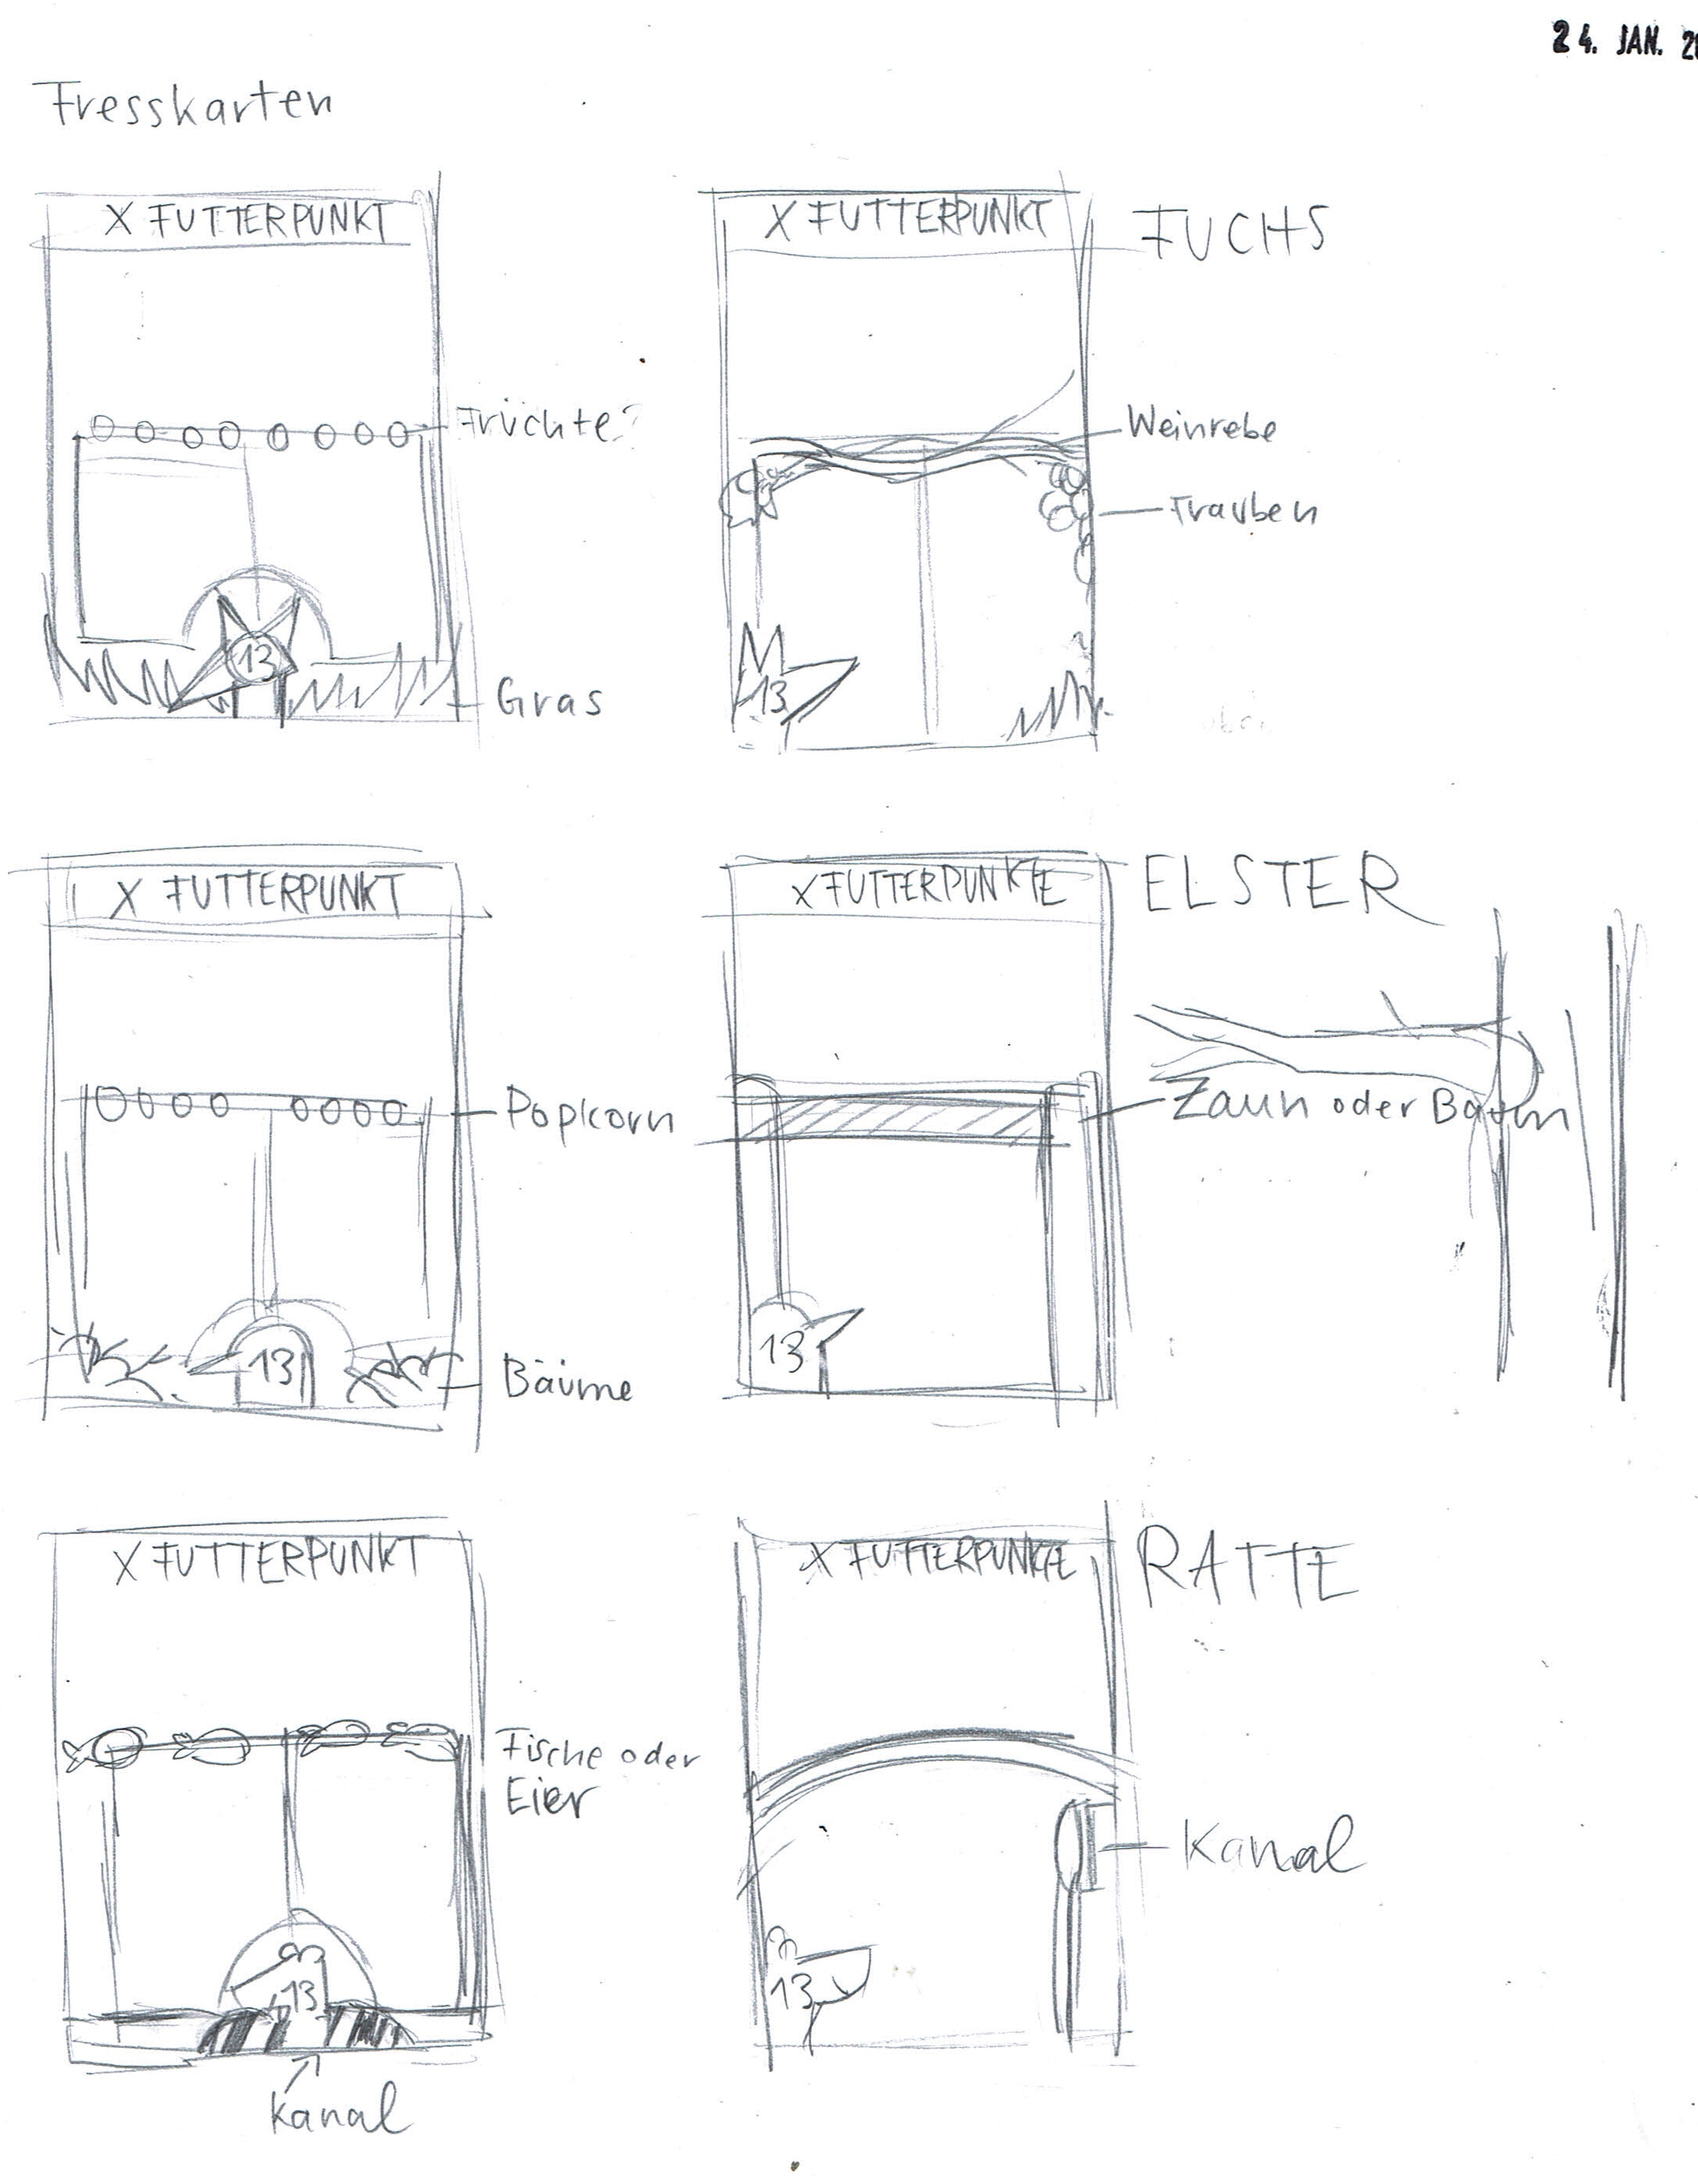 24. JAN. 2
Fresskarten
X FUTTERPUNKT
X FUTTERPUNKT
FUCHS
Früchte?
Weinrebe
Trauben
13
Gras
13
X FUTTERPUNKT
X FUTTERPUNKTE
ELSTER
Popkorn
Zaun oder Baum
13
Bäume
13
X FUTTERPUNKT
X FUTTERPUNKTE
RATTE
Fische oder
Eier
Kanal
13
13
Kanal